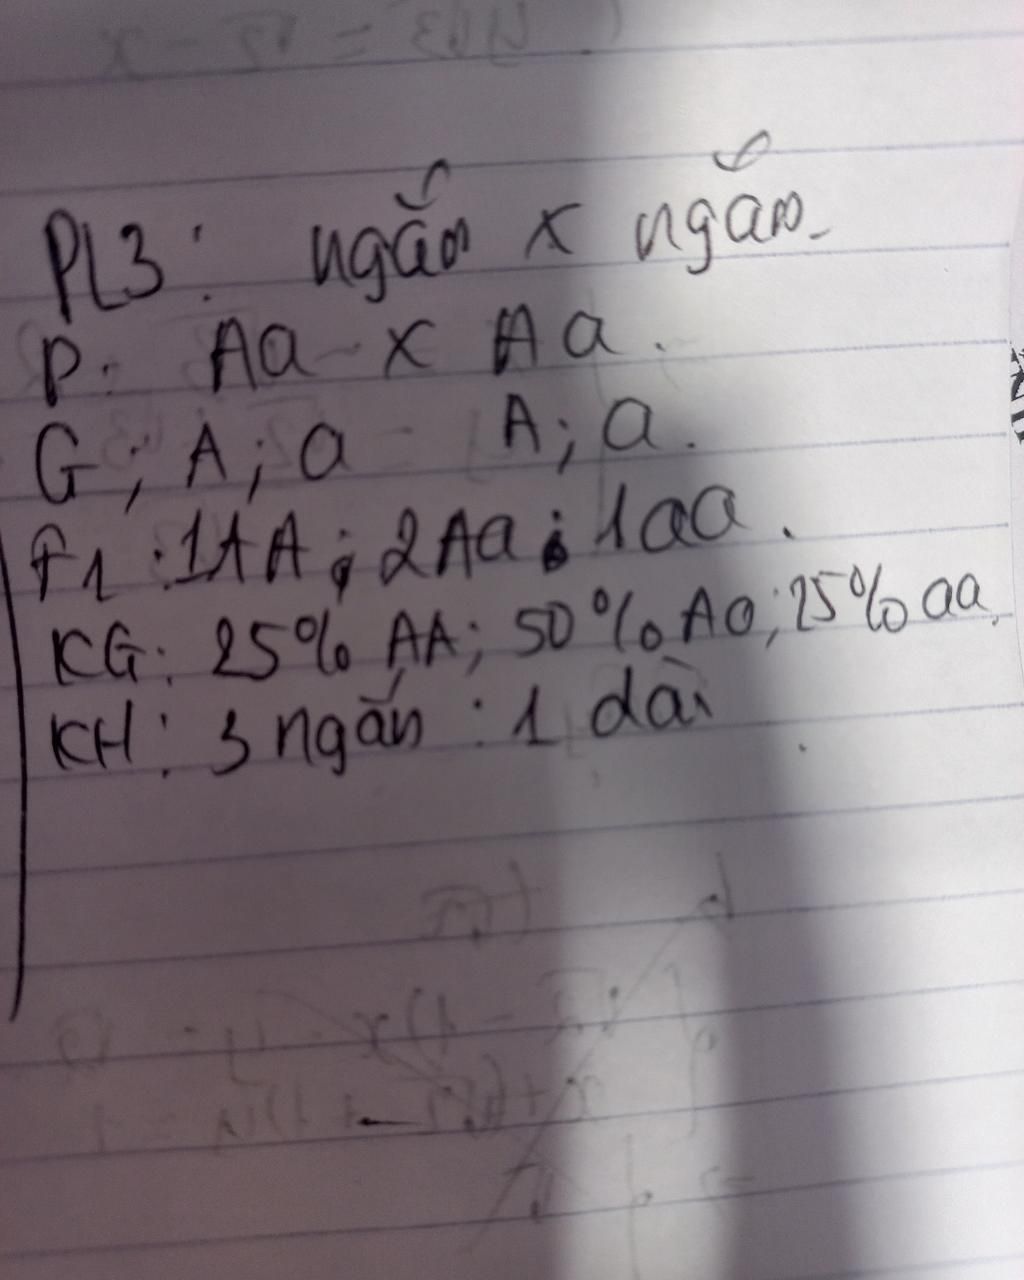 PL3: ngắn x ngắn.
P: Aa x Aa.
G; A; a A; a.
F1: 1AA; 2Aa; 1aa.
KG: 25% AA; 50% Aa; 25% aa.
KH: 3 ngắn : 1 dài